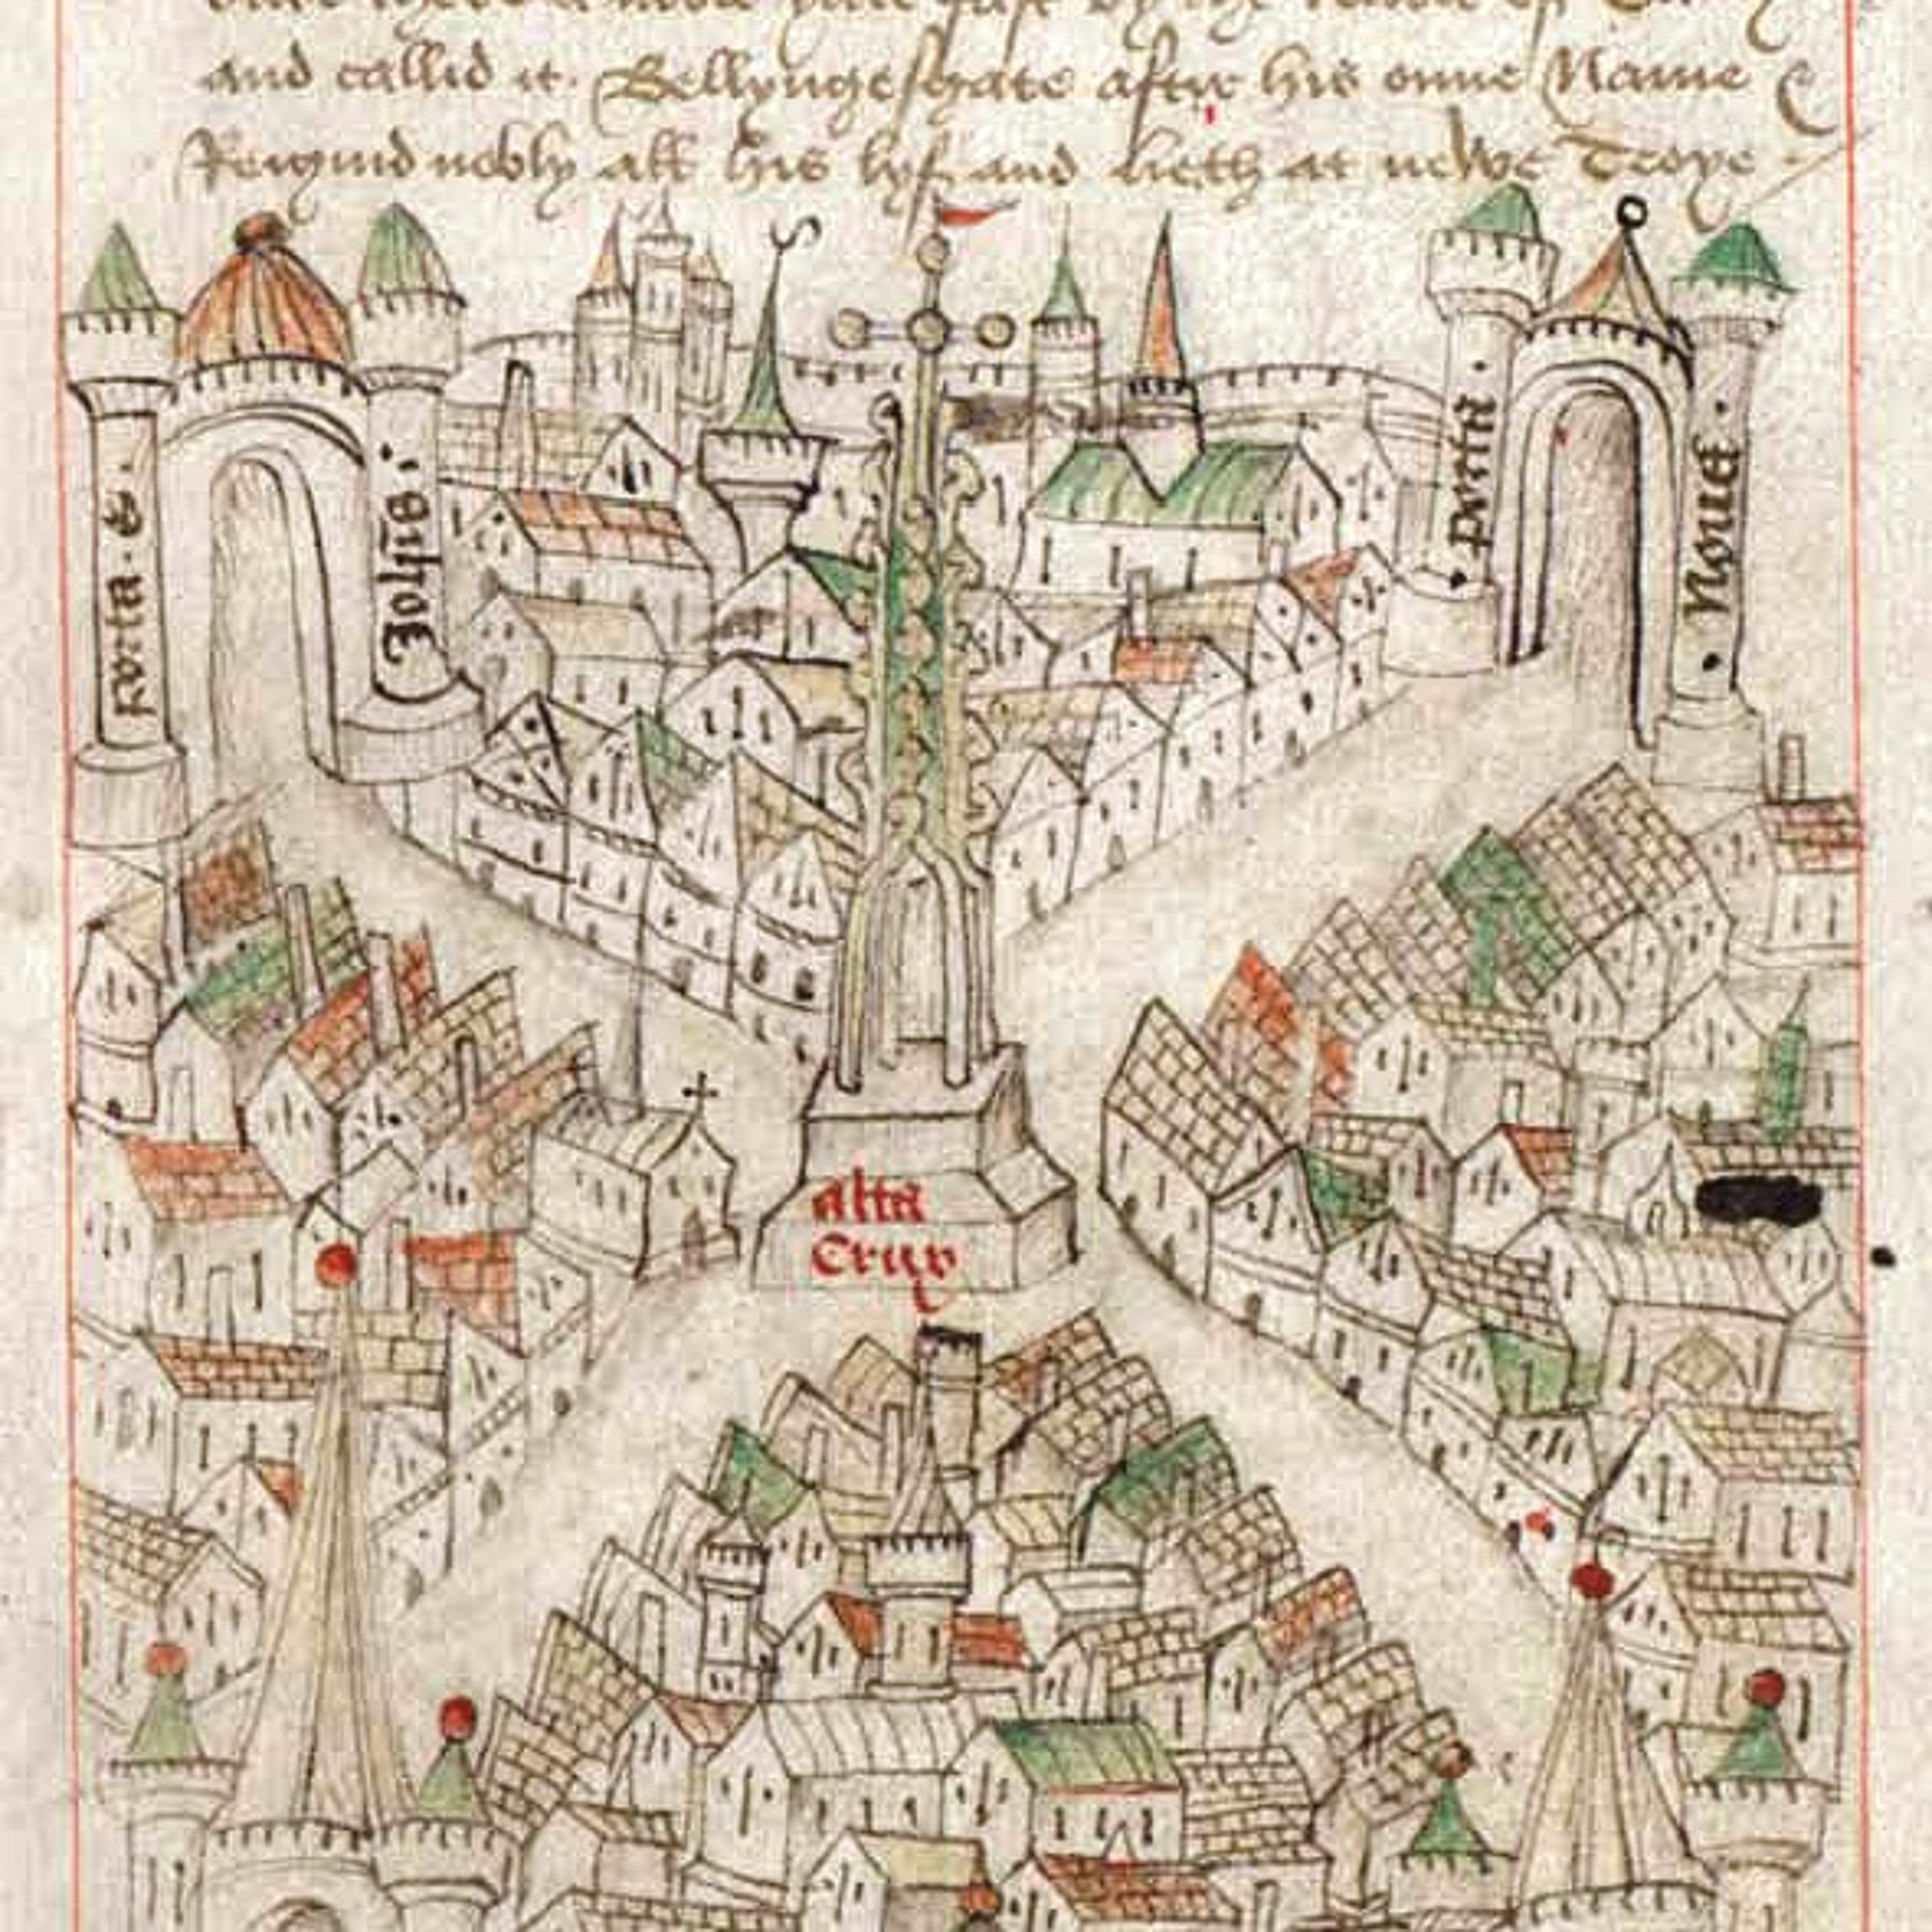 and callid it. Bellyngesgate after his owne Name
Reigned nobly all his lyf and lieth at newe Troye
porta. S. Johīs.
.porta. .Noua.
alta
Crux